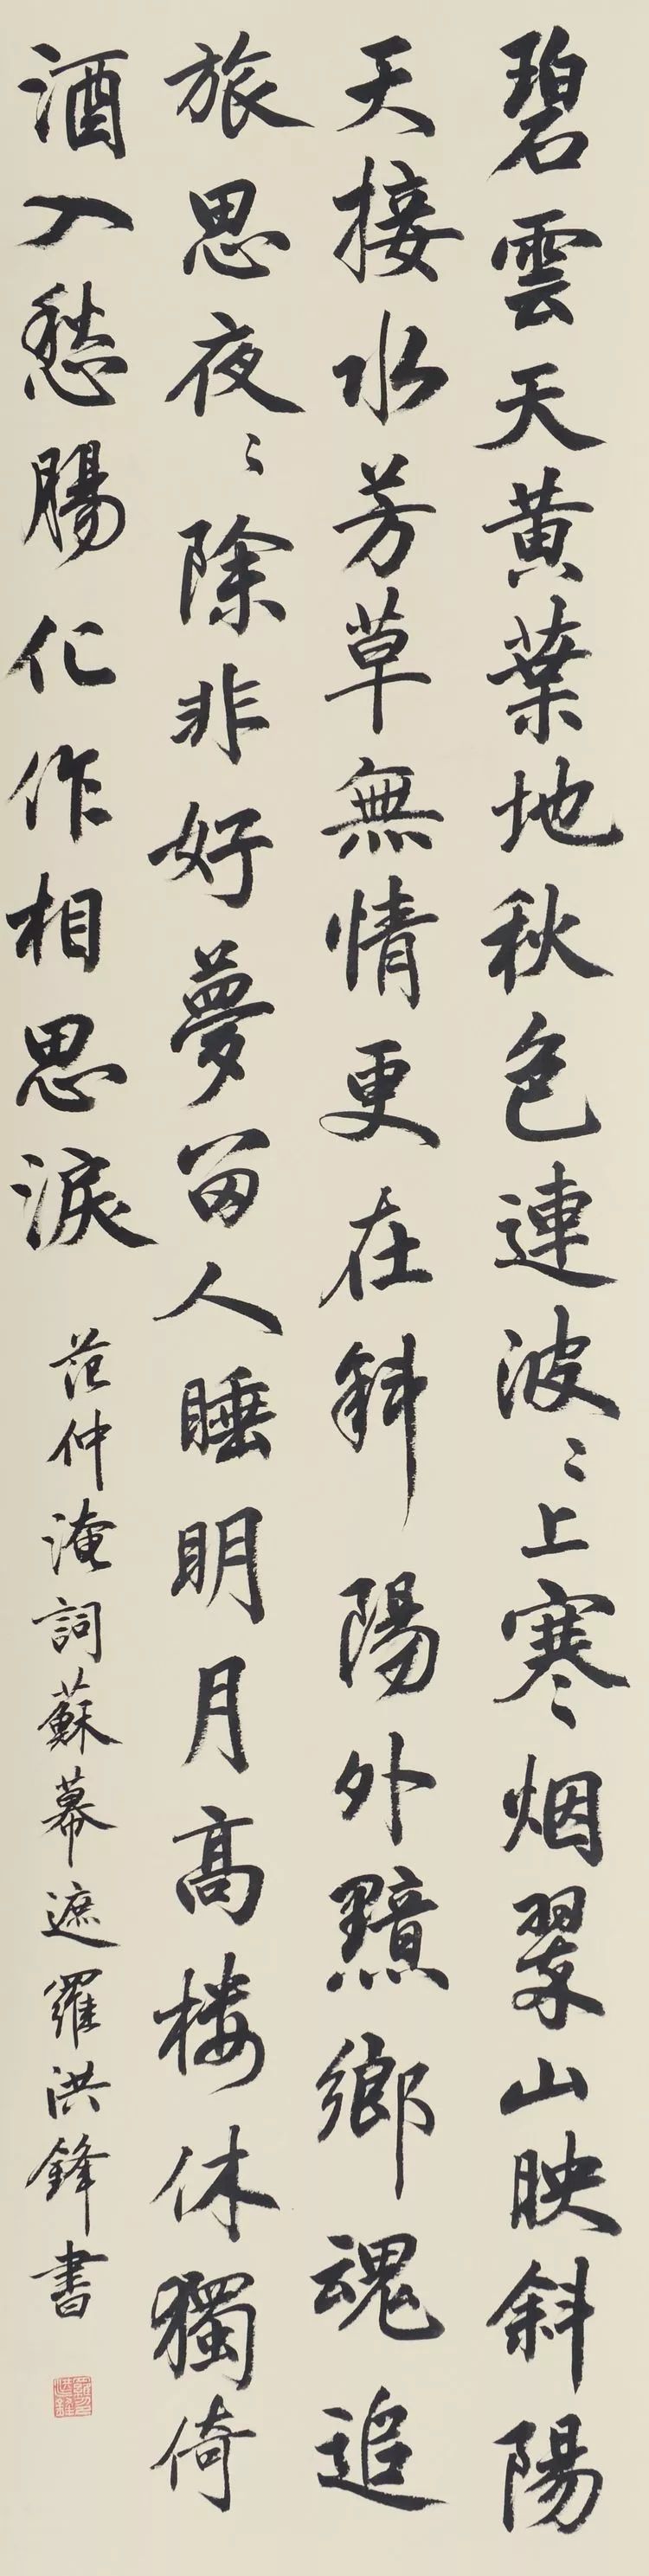 碧雲天黄葉地秋色連波〻上寒〻烟翠山映斜陽
天接水芳草無情更在斜陽外黯鄉魂追
旅思夜〻除非好夢留人睡明月高楼休獨倚
酒入愁腸化作相思淚 范仲淹詞蘇幕遮羅洪鋒書